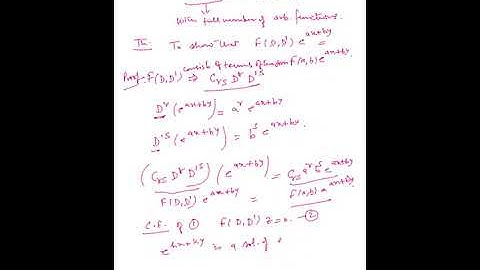 With full number of arb. functions.
Th: To show that F(D,D') e^{ax+by} =
Proof: F(D,D') ⇒ consist of terms of the form F(a,b) e^{ax+by}
C_{rs} D^r D'^s
D^r (e^{ax+by}) = a^r e^{ax+by}
D'^s (e^{ax+by}) = b^s e^{ax+by}
(C_{rs} D^r D'^s) (e^{ax+by}) = C_{rs} a^r b^s e^{ax+by}
F(D,D') e^{ax+by} = F(a,b) e^{ax+by}
C.F. of ① F(D,D') z = 0 —②
e^{hx+ky} is a sol. of